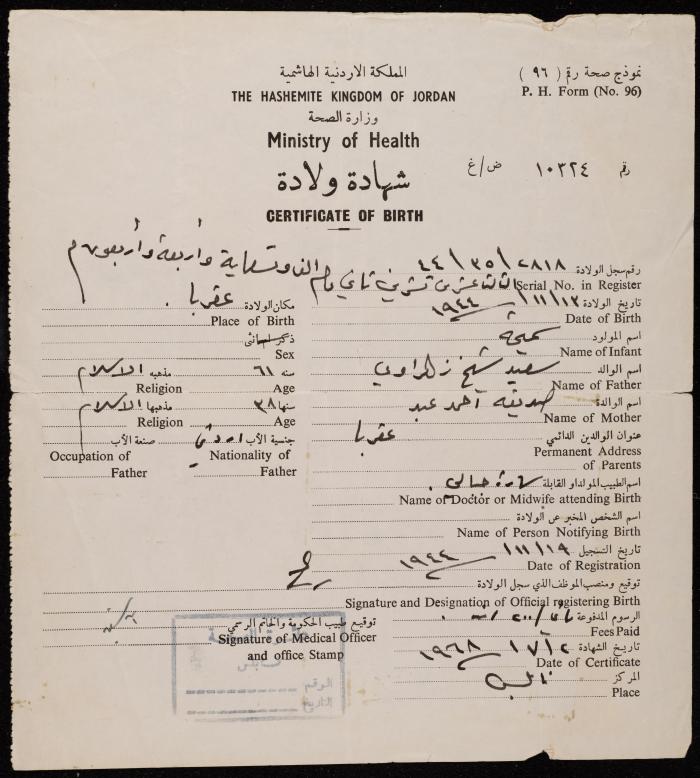 المملكة الاردنية الهاشمية
نموذج صحة رقم ( ٩٦ )
THE HASHEMITE KINGDOM OF JORDAN
P. H. Form (No. 96)
وزارة الصحة
Ministry of Health
رقم ١٠٣٢٤ ض/غ
شهادة ولادة
CERTIFICATE OF BIRTH
رقم سجل الولادة ٢٨١٨ / ٣٥ / ٤٤
Serial No. in Register
الثالث عشر من تشرين ثاني عام الف وتسعماية وأربعة وأربعون م
تاريخ الولادة ١٣ / ١١ / ١٩٤٤
مكان الولادة عقربا .
Date of Birth
Place of Birth
اسم المولود سميحة
ذكر او انثى
Name of Infant
Sex
اسم الوالد سعيد شيخ زهراوي
سنه ٦١ مذهبه الاسلام
Name of Father
Age Religion
اسم الوالدة صديقه احمد عبد
سنها ٣٨ مذهبها الاسلام
Name of Mother
Age Religion
عنوان الوالدين الدائمي عقربا
جنسية الأب اردني صنعة الأب
Permanent Address
of Parents
Nationality of Father
Occupation of Father
اسم الطبيب المولد او القابلة سارة
Name of Doctor or Midwife attending Birth
اسم الشخص المخبر عن الولادة
Name of Person Notifying Birth
تاريخ التسجيل ١٩ / ١١ / ١٩٤٤
Date of Registration
توقيع ومنصب الموظف الذي سجل الولادة
Signature and Designation of Official registering Birth
الرسوم المدفوعة
توقيع طبيب الحكومة والخاتم الرسمي
Fees Paid
Signature of Medical Officer
and office Stamp
تاريخ الشهادة ٢ / ٧ / ١٩٦٨
Date of Certificate
المركز نابلس
Place
نابلس
الرقم
التاريخ